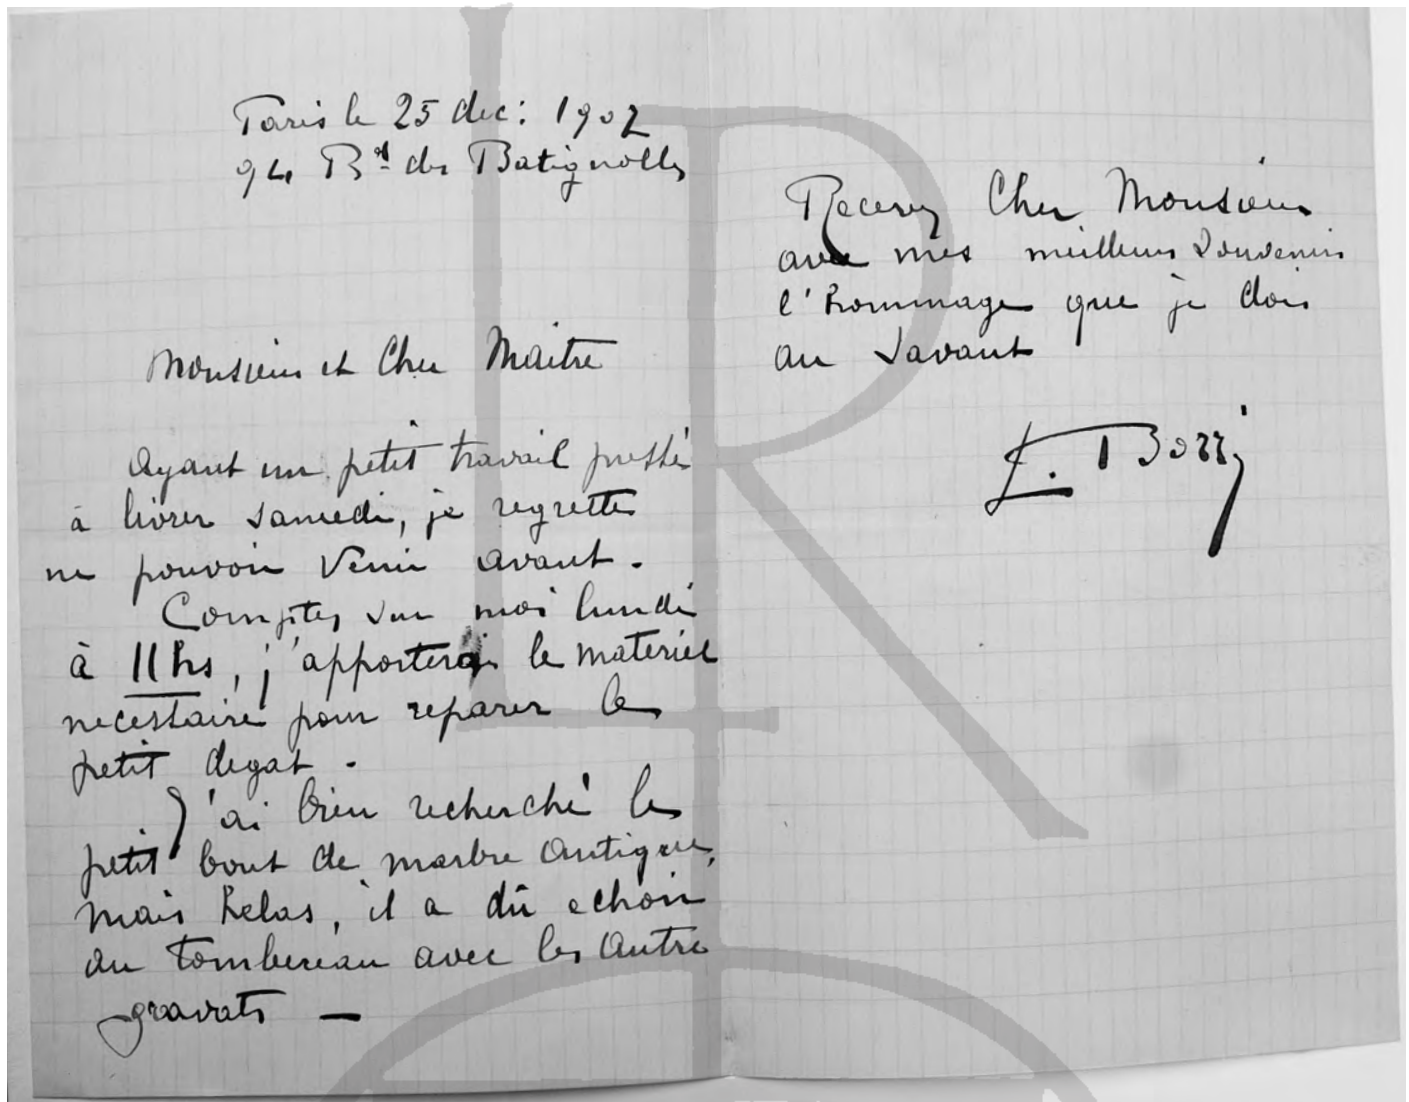 Paris le 25 dec: 1907
94 Bd des Batignolles
Monsieur et Cher Maitre
Ayant un petit travail pressé
à livrer samedi, je regrette
ne pouvoir venir avant.
Comptez sur moi lundi
à 11 hs, j'apporterai le materiel
necessaire pour reparer le
petit degat.
J'ai bien recherché le
petit bout de marbre antique,
mais helas, il a dû echoir
au tombereau avec les autre
gravats —
Recevez Cher Monsieur
avec mes meilleurs souvenirs
l'hommage que je dois
au savant